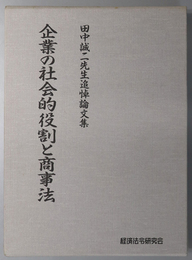 田中誠二先生追悼論文集
企業の社会的役割と商事法
経済法令研究会